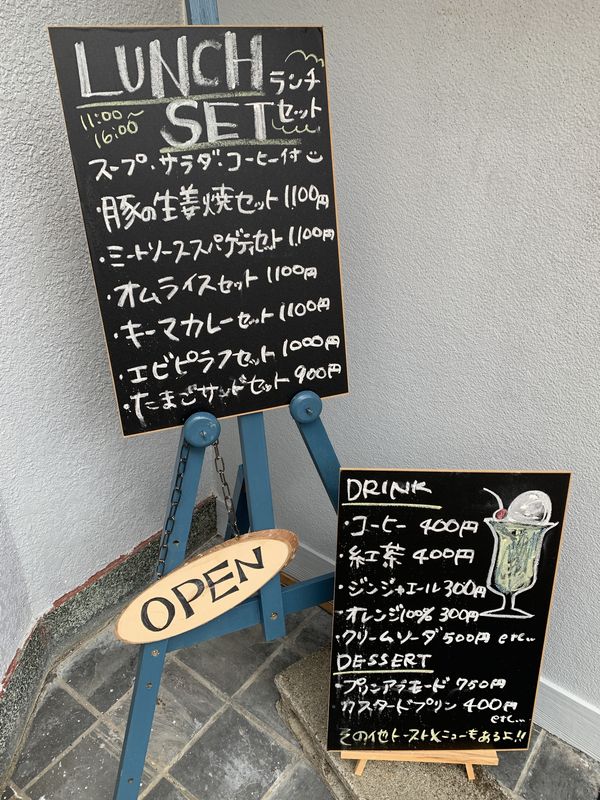 LUNCH ランチ
11:00~
16:00
SET セット
スープ・サラダ・コーヒー付
・豚の生姜焼セット 1,100円
・ミートソーススパゲティセット 1,100円
・オムライスセット 1,100円
・キーマカレーセット 1,100円
・エビピラフセット 1000円
・たまごサンドセット 900円
OPEN
DRINK
・コーヒー 400円
・紅茶 400円
・ジンジャエール 300円
・オレンジ100% 300円
・クリームソーダ 500円 etc...
DESSERT
・プリンアラモード 750円
カスタードプリン 400円
etc...
その他トーストメニューもあるよ!!